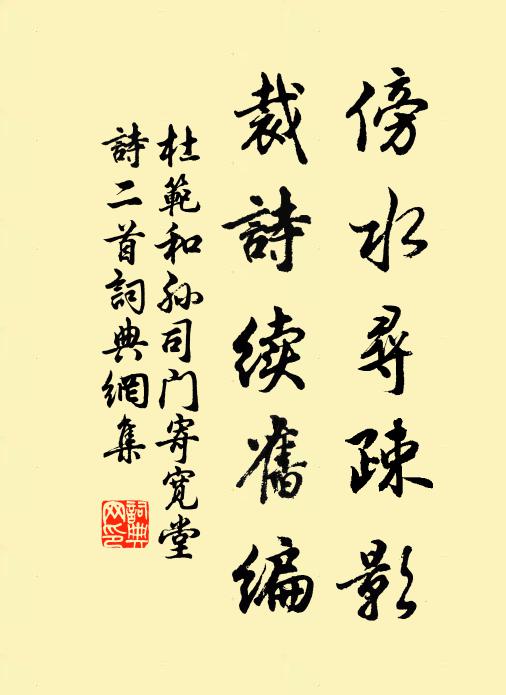 傍水尋疎影
裁詩續舊編
杜範和孫司门寄宽堂
詩二首詞典網集
詞典
网印